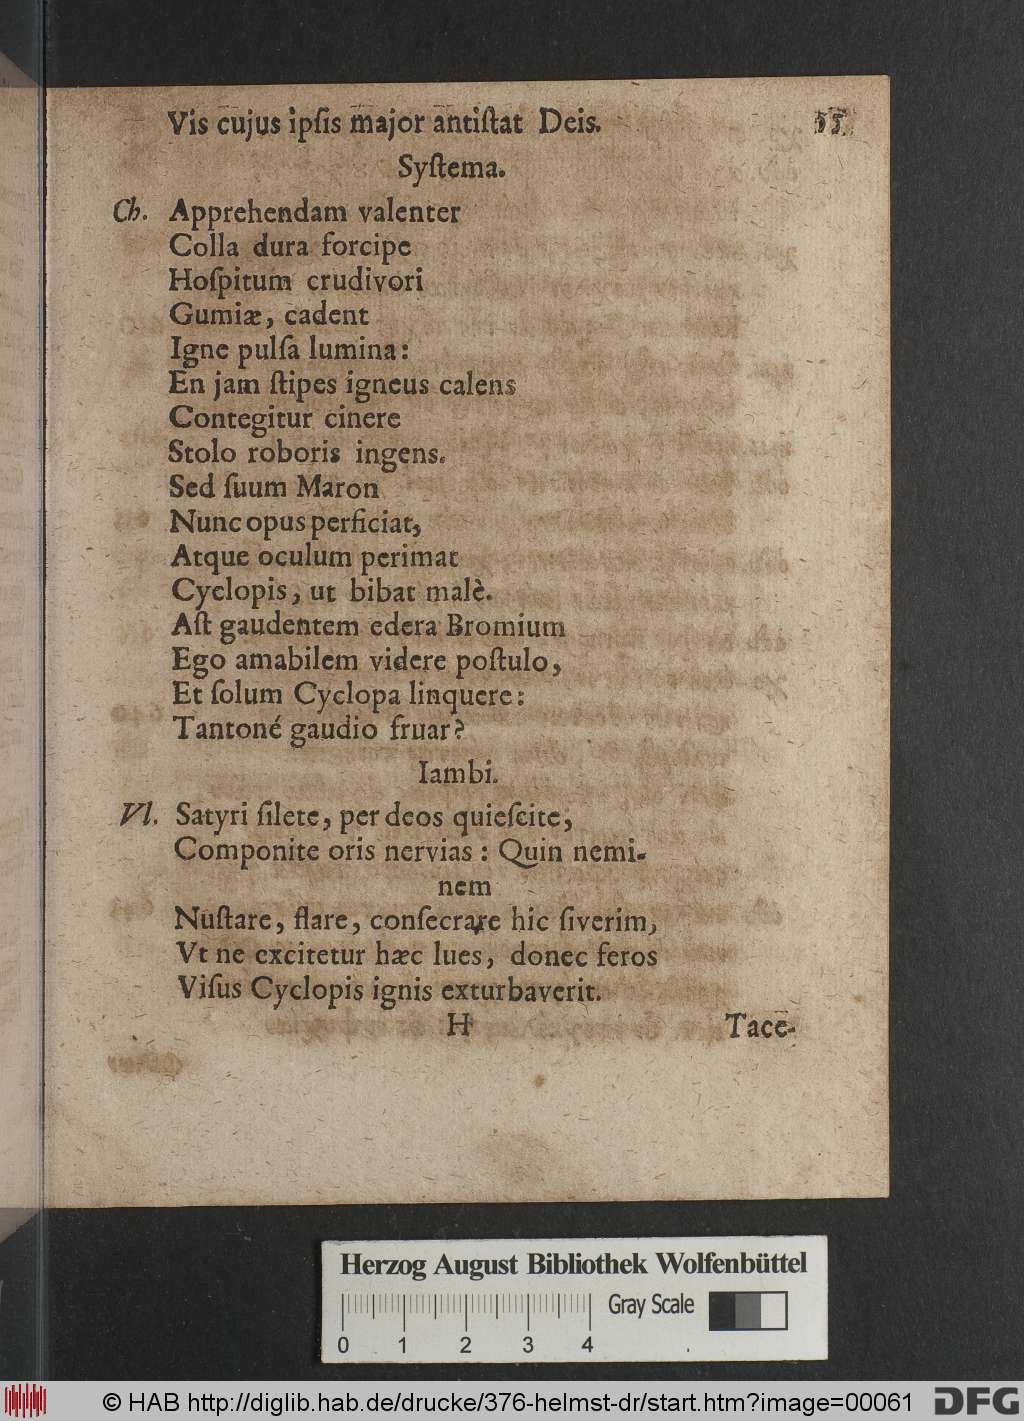 Vis cujus ipſis major antiſtat Deis. 55
Syſtema.
Ch. Apprehendam valenter
Colla dura forcipe
Hoſpitum crudivori
Gumiæ, cadent
Igne pulſa lumina:
En jam ſtipes igneus calens
Contegitur cinere
Stolo roboris ingens.
Sed ſuum Maron
Nunc opus perficiat,
Atque oculum perimat
Cyclopis, ut bibat malè.
Aſt gaudentem edera Bromium
Ego amabilem videre poſtulo,
Et ſolum Cyclopa linquere:
Tantoné gaudio fruar?
Iambi.
Vl. Satyri ſilete, per deos quieſcite,
Componite oris nervias: Quin nemi-
nem
Nuſtare, flare, conſecrare hic ſiverim,
Vt ne excitetur hæc lues, donec feros
Viſus Cyclopis ignis exturbaverit.
H Tace-
Herzog August Bibliothek Wolfenbüttel
Gray Scale
0 1 2 3 4
© HAB http://diglib.hab.de/drucke/376-helmst-dr/start.htm?image=00061 DFG